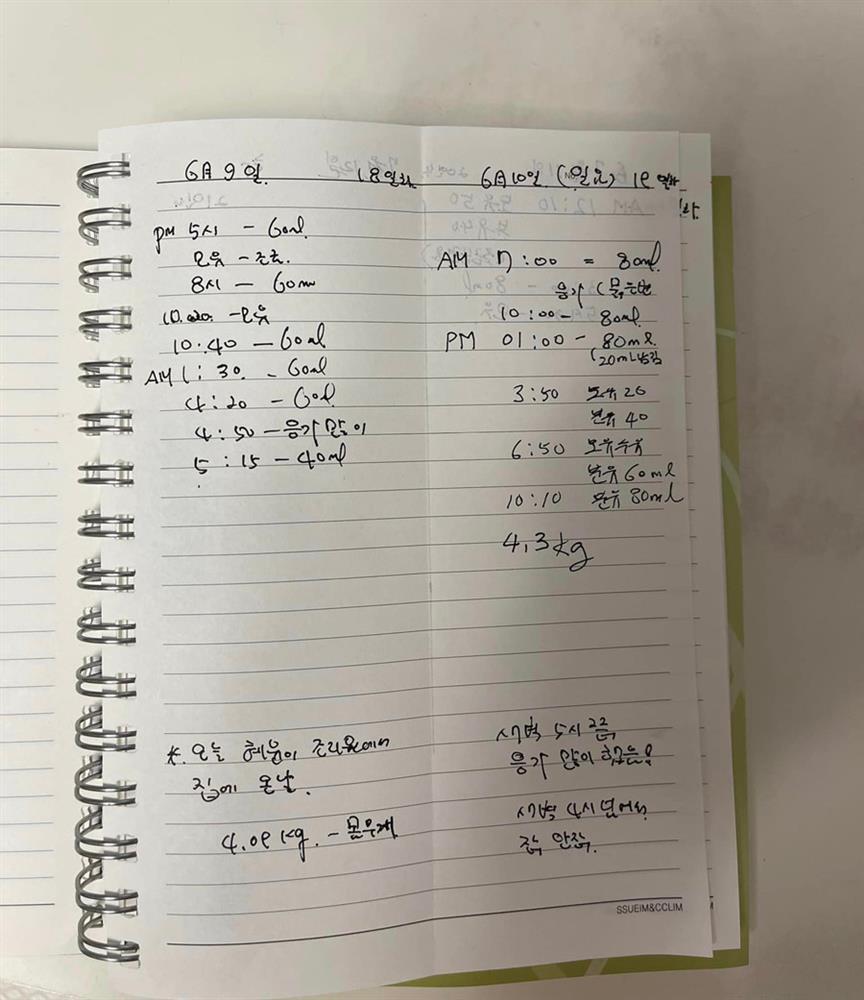 6月 9일. 18일차
PM 5시 - 60ml.
모유 - 조금.
8시 - 60ml
10:20. - 모유
10:40 - 60ml
AM 1:30. - 60ml
4:20 - 60ml
4:50 - 응가 많이
5:15 - 40ml
*. 오늘 혜움이 조리원에서
집에 온 날.
4.09 kg. - 몸무게
6月 10일. (일요) 19일차
AM 7:00 = 80ml.
응가 (묽은변
10:00 - 80ml.
PM 01:00 - 80ml.
(20ml 남김
3:50 모유 20
분유 40
6:50 모유수유
분유 60ml
10:10 분유 80ml
4.3kg
새벽 5시
응가 많이
새벽 4시 넘어서
잠 안잠.
SSUEIM&CCLIM